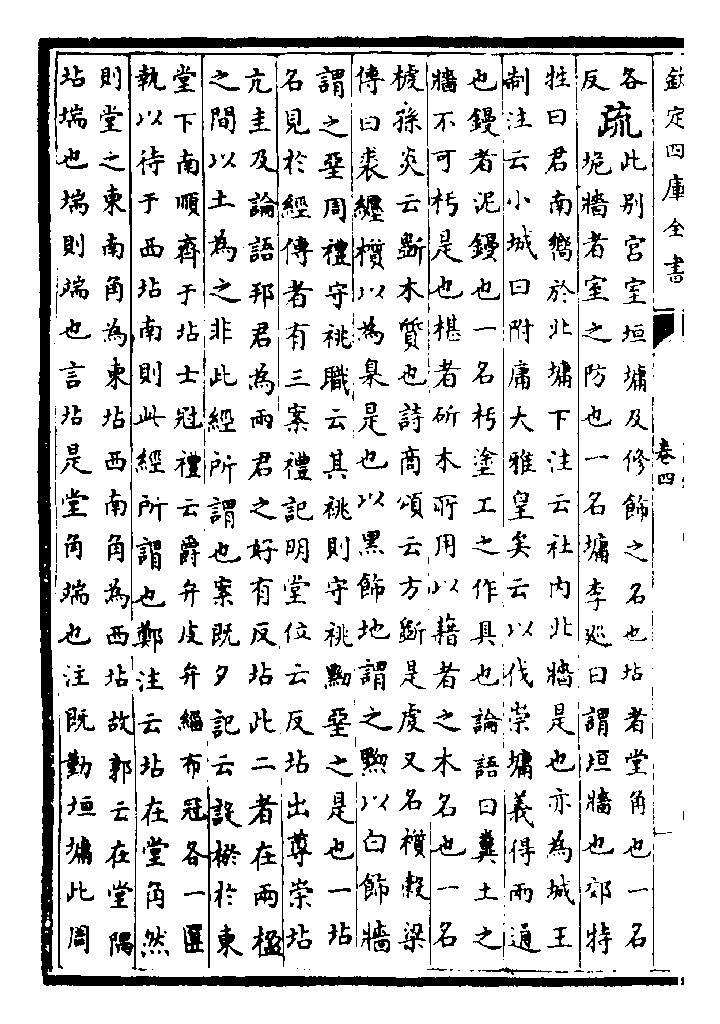 欽定四庫全書
卷四
各疏此别宫室垣墉及修飾之名也坫者堂角也一名
反垝牆者室之防也一名墉李廵曰謂垣牆也郊特
牲曰君南嚮於北墉下注云社内北牆是也亦為城王
制注云小城曰附庸大雅皇矣云以伐崇墉義得兩通
也鏝者泥鏝也一名杇塗工之作具也論語曰糞土之
牆不可杇是也椹者斫木所用以藉者之木名也一名
榩孫炎云斲木質也詩商頌云方斲是虔又名櫍榖梁
傳曰裘纒櫍以為臬是也以黑飾地謂之黝以白飾牆
謂之堊周禮守祧職云其祧則守祧黝堊之是也一坫
名見於經傳者有三案禮記明堂位云反坫出尊崇坫
亢圭及論語邦君為兩君之好有反坫此二者在兩楹
之間以土為之非此經所謂也案既夕記云設棜於東
堂下南順齊于坫士冠禮云爵弁皮弁緇布冠各一匴
執以待于西坫南則此經所謂也鄭注云坫在堂角然
則堂之東南角為東坫西南角為西坫故郭云在堂隅
坫端也端則端也言坫是堂角端也注既勤垣墉此周